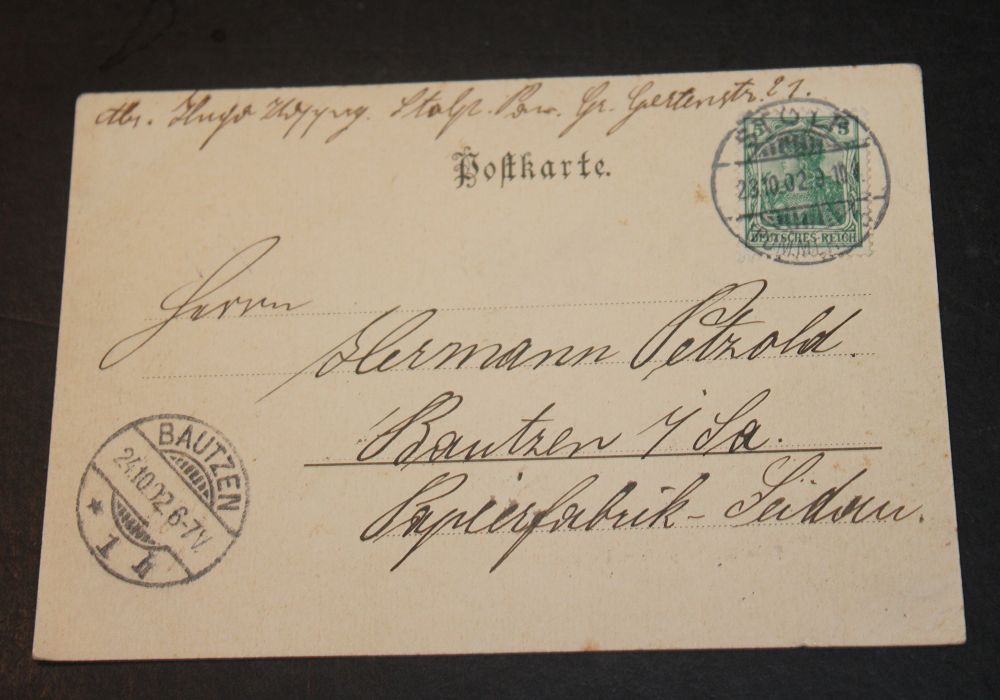 Abs. Hugo Stolp. Pom. Gr. Gertenstr. 21.
Postkarte.
STOLP
5 5
23.10.02.9-10V
DEUTSCHES REICH
(POMMERN)
Herrn
Hermann Petzold.
Bautzen i/Sa.
Papierfabrik-Seidau.
BAUTZEN
24.10.02.6-7V.
* 1